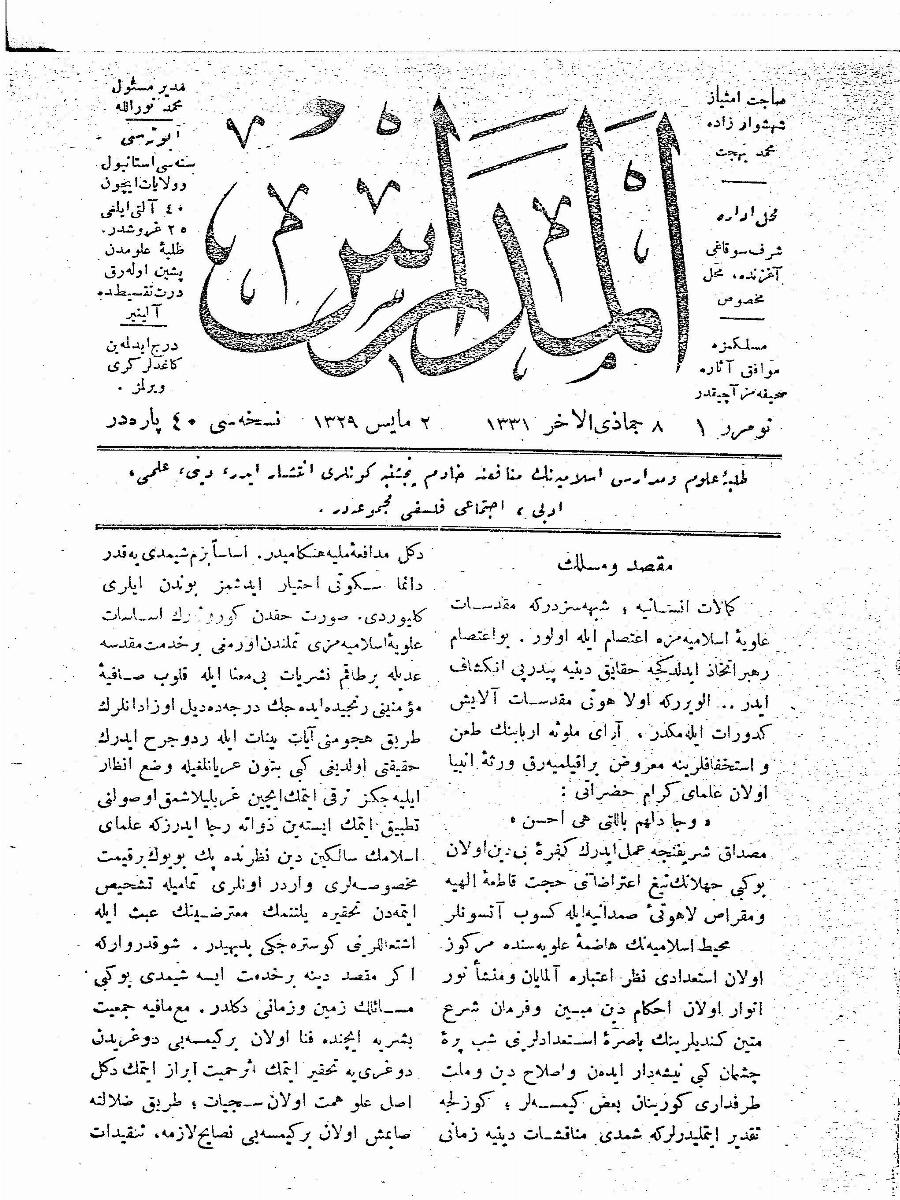 صاحب امتیاز
شهسوار زاده
محمد بهجت
محل اداره
شرف سوقاغی
آغزنده، محل
مخصوص
مسلكمزه
موافق آثاره
صحیفه‌مز آچیقدر
المدارس
مدیر مسئول
محمد نورالله
ابونه‌سی
سنه‌سی استانبول
و ولایات ایچون
٤٠ آلتی آیلغی
٢٥ غروشدر.
طلبهٔ علومدن
پشین اوله‌رق
درت تقسیطده
آلینیر
درج ایدلمه‌ین
كاغدلر گری
ویرلمز .
نومرو ١ ٨ جماذی الاخر ١٣٣١ ٢ مایس ١٣٢٩ نسخه‌سی ٤٠ پاره‌در
طلبهٔ علوم و مدارس اسلامیه‌نك منافعنه خادم پنجشنبه كونلری انتشار ایدر، دینی، علمی،
ادبی ، اجتماعی فلسفی مجموعه‌در .
مقصد ومسلك
كمالات انسانیه ؛ شبهه‌سزدركه مقدسات
علویهٔ اسلامیه‌مزه اعتصام ایله اولور . بواعتصام
رهبر اتخاذ ایدلدكجه حقایق دینیه پیدرپی انكشاف
ایدر .. الویرركه اولا هوتی مقدسات آلایش
كدورات ایله مكدر ، آرای ملوثه اربابنك طعن
و استخفافلرینه معروض براقیلمیه‌رق ورثهٔ انبیا
اولان علمای كرام حضراتی :
« وجادلهم بالتی هی احسن »
مصداق شریفنجه عمل ایدرك كفرهٔ بی دین اولان
بوكبی جهلانك تیغ اعتراضاتی حجت قاطعهٔ الهیه
ومقراض لاهوتیٔ صمدانیه‌ایله كسوب آتسونلر
محیط اسلامیه‌نك هاضمهٔ علویه‌سنده مركوز
اولان استعدادی نظر اعتباره آلمایان ومنشأ نور
انوار اولان احكام دین مبین وفرمان شرع
متین كندیلرینك باصرهٔ استعدادلرینی شب پرهٔ
چشمان كبی نیشه‌دار ایدن واصلاح دین وملت
طرفداری كورینان بعض كیمسه‌لر ؛ كوزلجه
تقدیر ایتملیدرلركه شمدی مناقشات دینیه زمانی
دكل مدافعهٔ ملیه هنكامیدر. اساساً بزم شیمدی یه‌قدر
دائما سكوتی اختیار ایدشمز بوندن ایلری
كلیوردی. صورت حقدن كورونرك اساسات
علویهٔ اسلامیه‌مزی تملندن‌اورمنی برخدمت مقدسه
عدیله برطاقم نشریات بی‌معنا ایله قلوب صافیهٔ
مؤمنینی رنجیده ایده‌جك درجه‌ده دیل اوزادانلرك
طریق هجومنی آیات بینات ایله ردوجرح ایدرك
حقیقتی اولدیغی كبی بتون عریانلغیله وضع انظار
ایلیه‌جكز ترقی ایتمك ایچین غربلیلاشمق اوصولنی
تطبیق ایتمك ایسته‌ین ذواته رجا ایدرزكه علمای
اسلامك سالكین دین نظرنده پك بویوك برقیمت
مخصوصه‌لری واردر اونلری تمامیله تشخیص
ایتمه‌دن تحقیره یلتنمك معترضینك عبث ایله
اشتغاللرینی كوستره‌جكی بدیهیدر. شوقدروارکه
اكر مقصد دینه برخدمت ایسه شیمدی بوكبی
مسائلك زمین وزمانی دكلدر. مع‌مافیه جمعیت
بشریه ایچنده فنا اولان بركیمسه‌یی دوغریدن
دوغری‌یه تحقیر ایتمك اثرحمیت ابراز ایتمك دكل
اصل علو همت اولان سجیات ؛ طریق ضلالته
صاپمش اولان بركیمسه‌یی نصایح لازمه، تنقیدات